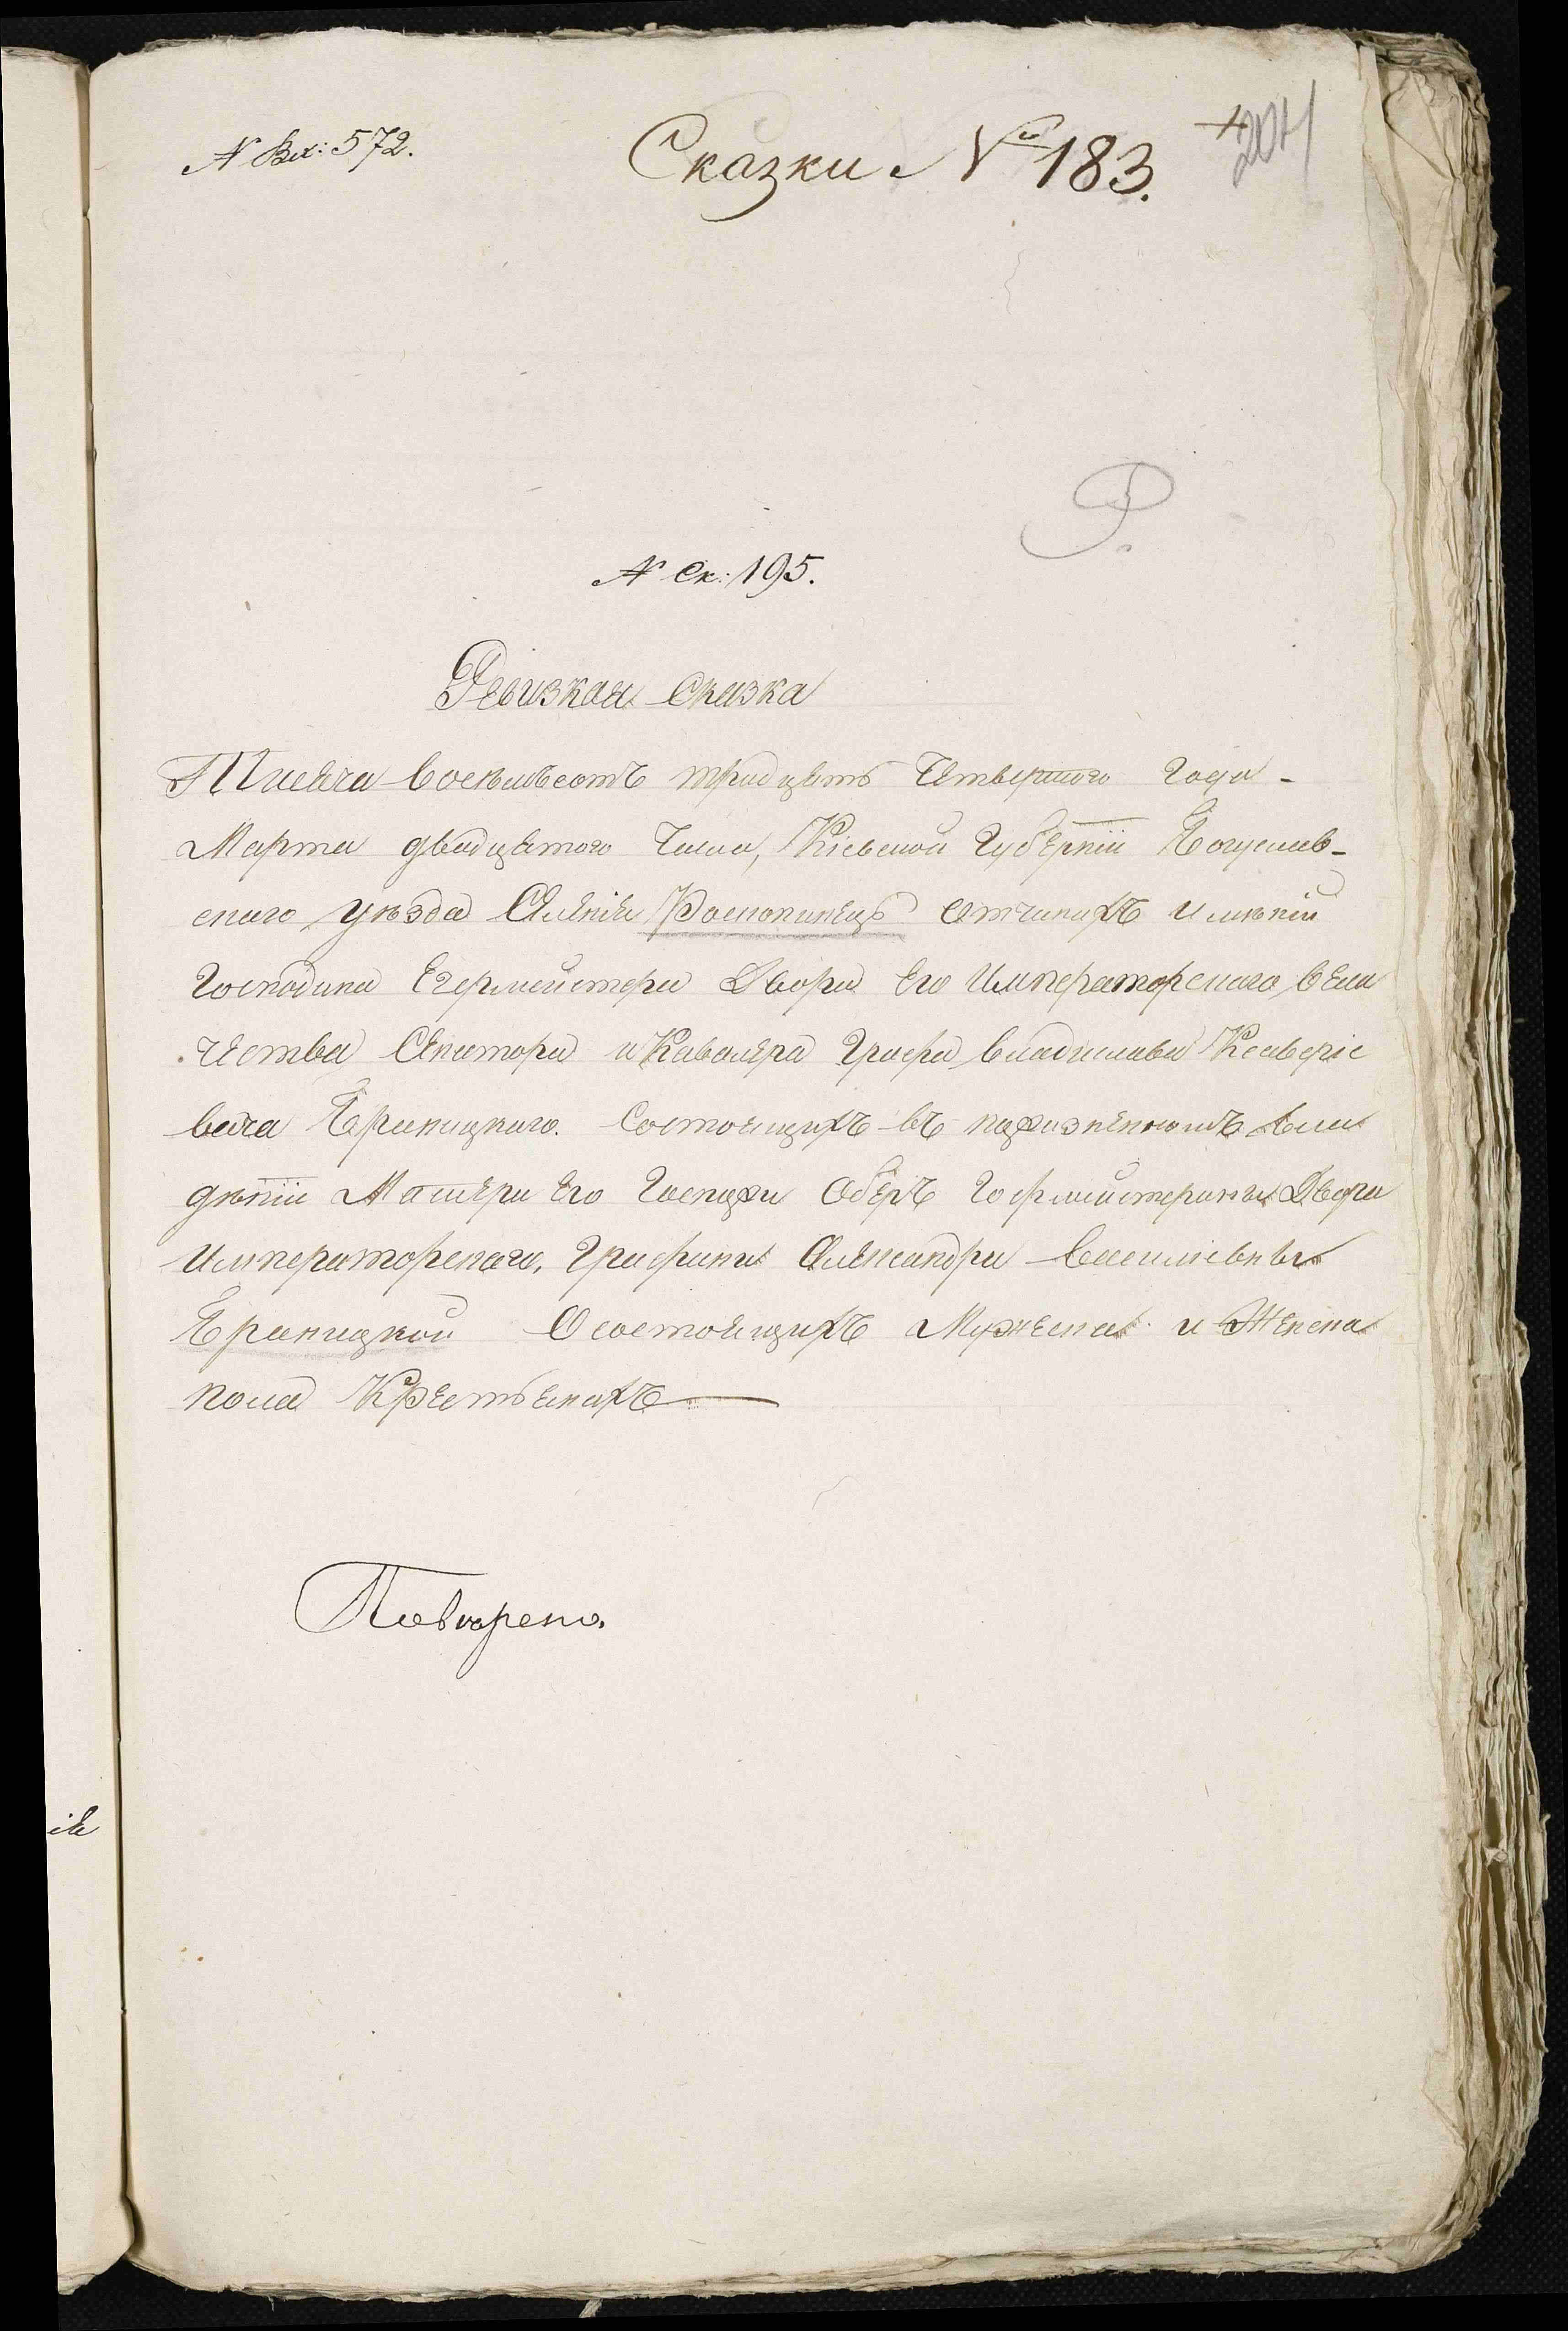 N Вх: 572.
Сказки № 183.
204
N Ск: 195.
Ревизкая Сказка
Тисяча Восемьсотъ тридцять Четвертого Года -
Марта двадцятого Числа, Кіевской Губерніи Богуслав-
скаго уѣзда Селенія отчинахъ имѣній
Господина Егермейстера Двора Его Императорскаго Вели
чества Сенатора и Кавалера Графа Владислава Ксаверіе
вича Браницкаго. Состоящихъ въ пожизненномъ Вла
дѣніи Матери Его Госпожи Оберъ Гофмейстерины Двора
Императорскаго, Графини Александри Василіевны
Браницкой О состоящихъ Мужеска и Женска
пола Крестьянахъ